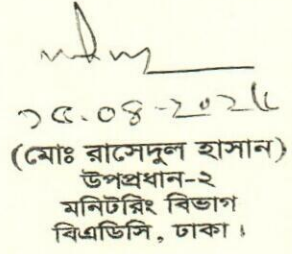 ১৫.০৪-২০২৫
(মোঃ রাসেদুল হাসান)
উপপ্রধান-২
মনিটরিং বিভাগ
বিএডিসি, ঢাকা।